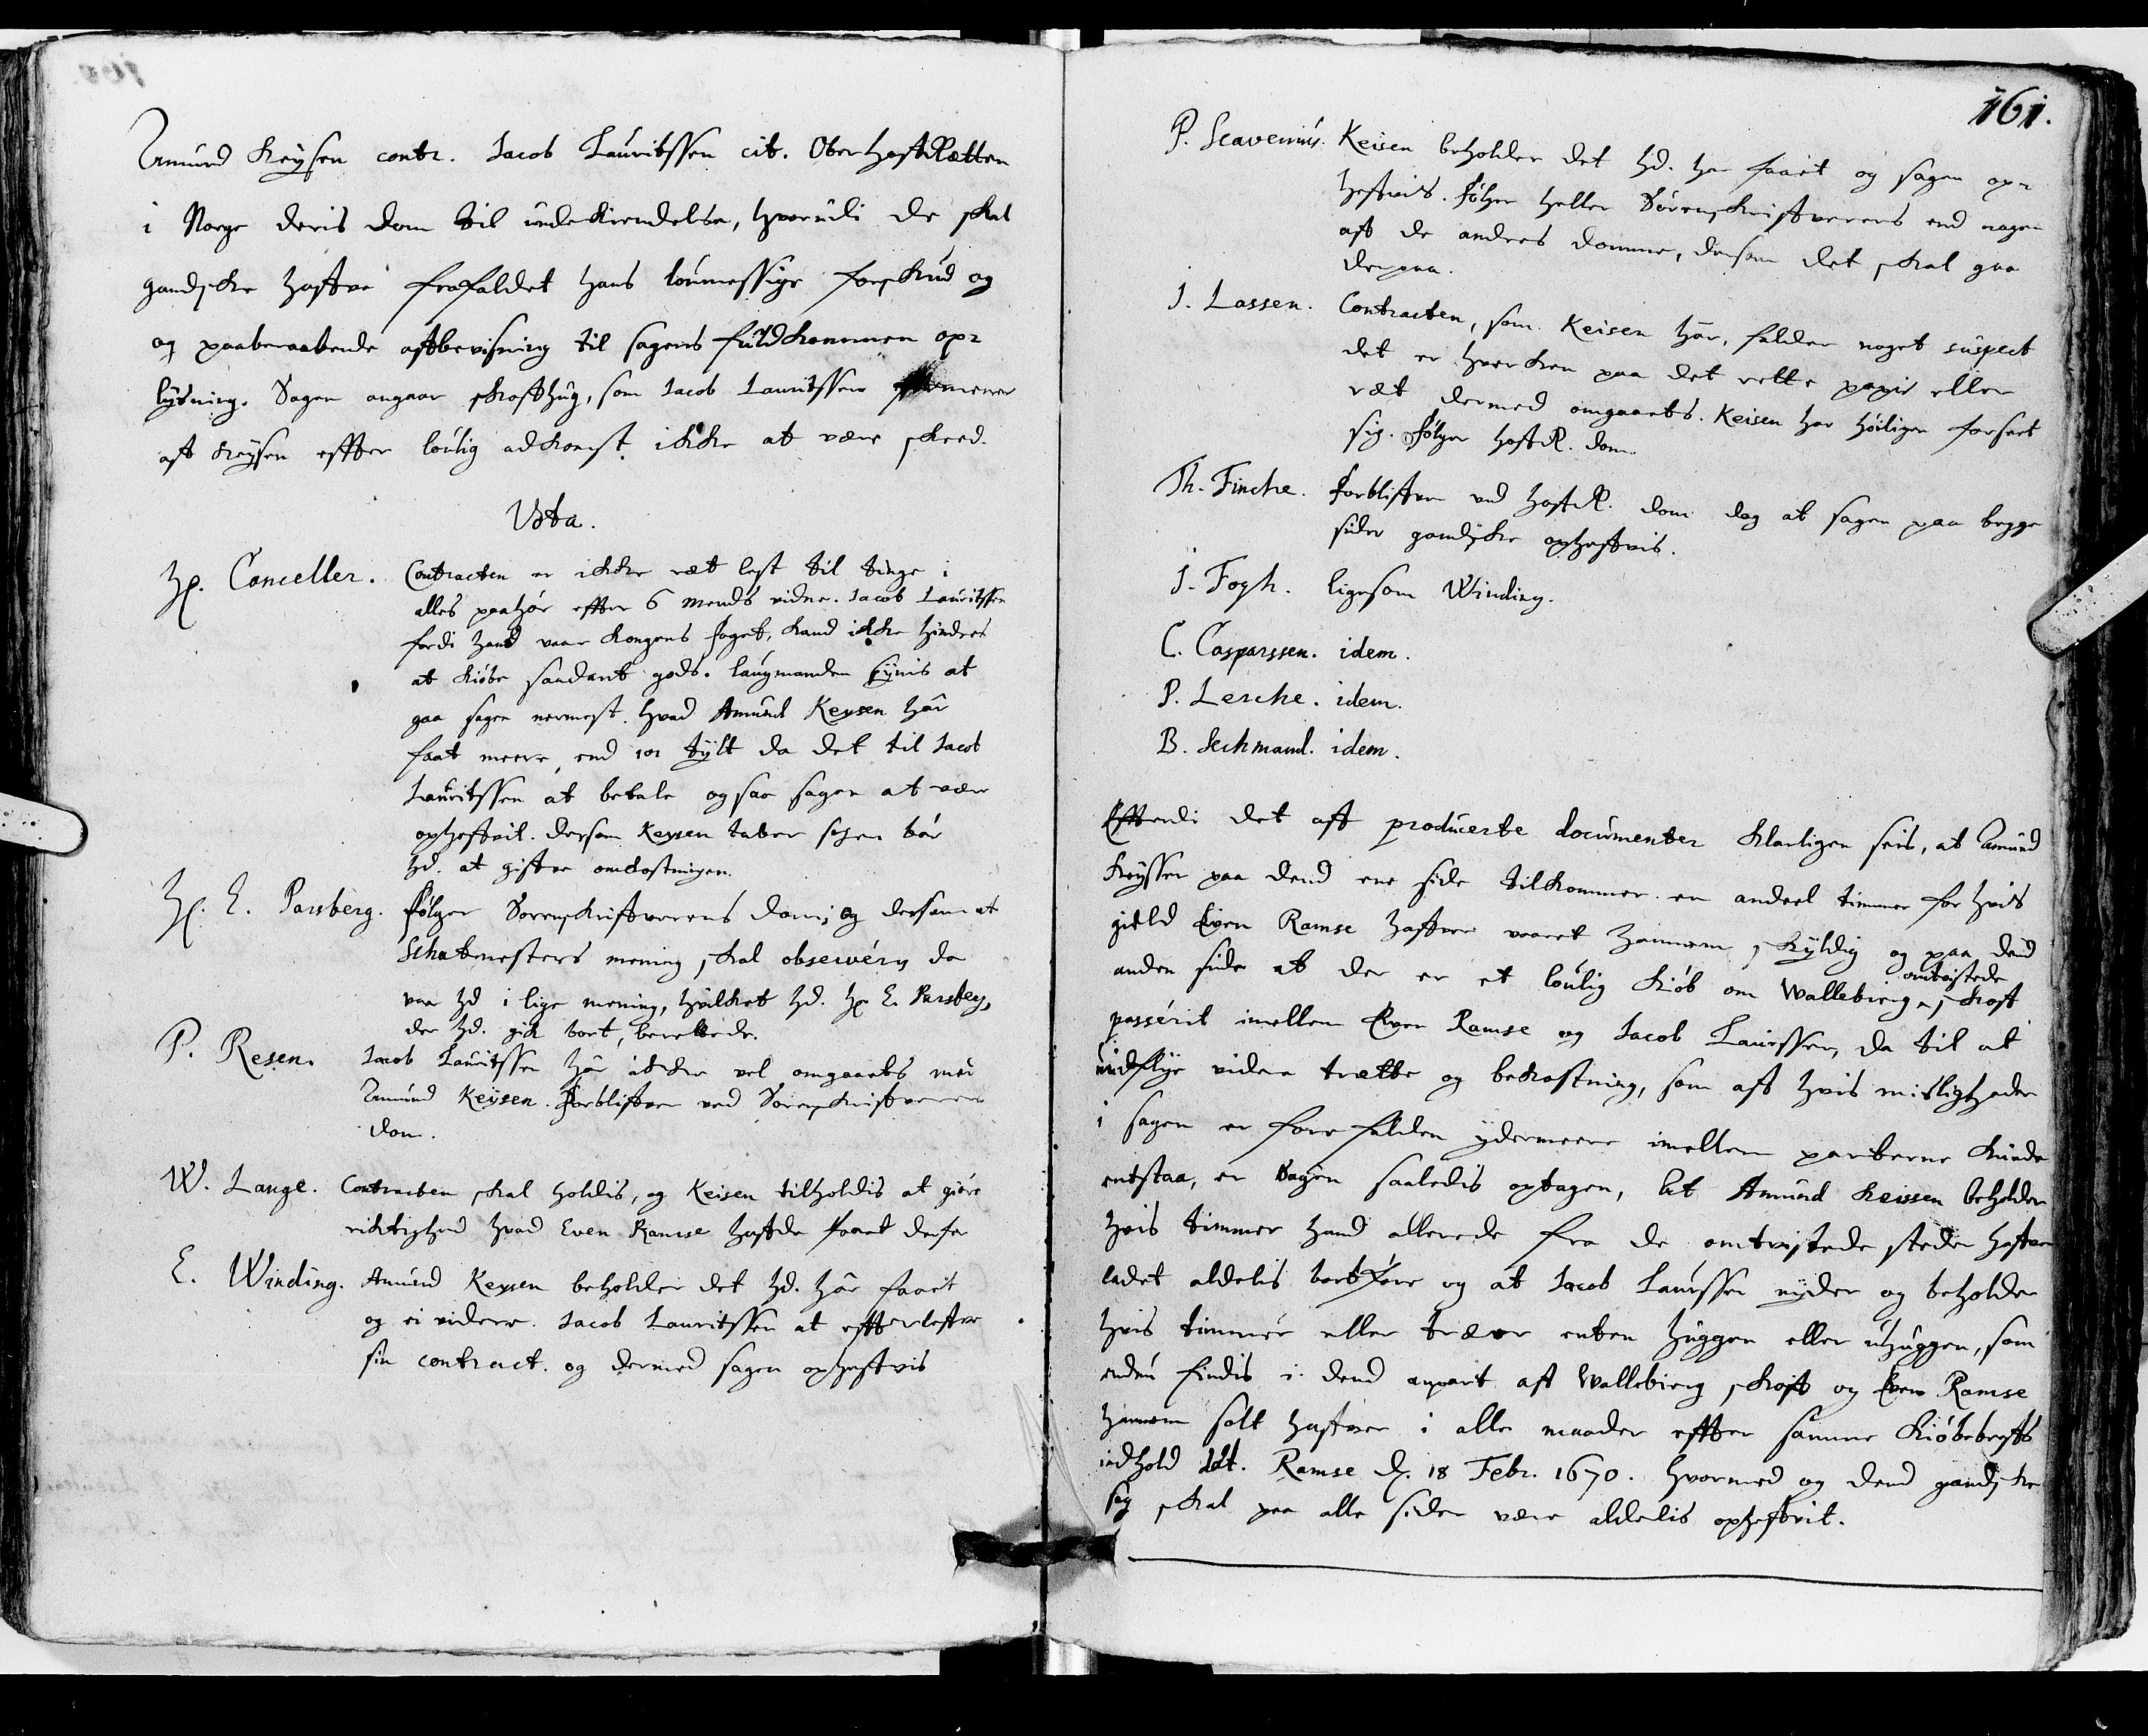 Amund Keysen contr. Jacob Lauritssen cit. OberhoffRætten
i Norge deris dom til underkiendelse, hvorudi de skal
gandske haffve frafaldet hans loumessige forskud og
og paaberaabende affbevisning til sagens fuldkommen op-
lysning. Sagen angaar skoffhug, som Jacob Lauritssen formener
aff Keysen effter loulig adkomst ikke at være skeed.
Vota.
H. Canceller. Contracten er ikke ræt lest til tinge i
alles paahør effter 6 Mends vidne. Jacob Lauritssen
fordi hand vaar Kongens foget, kand ikke hindres
at kiøbe saadant gods. laugmanden synis at
gaa sagen nermest. hvad Amund Keysen har
faat meere, end 101 tylt da det til Jacob
Lauritssen at betale og saa sagen at være
ophæffvit. dersom Keysen taber sagen bør
hd. at giffve omkostningen.
H. E. Parsberg. følger Sorenskriffverens dom, og dersom at
Schatmesters mening skal observéris da
vaar hd i lige mening, hvilket hd. H. E. Parsberg,
der hd. gik bort, berettede.
P. Resen. Jacob Lauritssen har ikke vel omgaaets med
Amund Keysen. forbliffver ved Sorenskriffverens
dom.
W. Lange. Contracten skal holdis, og Keisen tilholdis at giøre
rigtighed hvad Even Ramse haffde faaet derfor
E. Winding. Amund Keysen beholder det hd. har faaet
og ei videre. Jacob Lauritssen at effterleffve
sin contract. og dermed sagen ophæffvis
161.
P. Scavenius. Keisen beholder det hd. har faaet og sagen op-
hæffvis. følger heller Sorenskriffverens end nogen
aff de andres domme, dersom det skal gaa
derpaa.
J. Lassen. Contracten, som Keisen har, falder noget suspect
det er hverken paa det rette papir eller
ræt dermed omgaaets. Keisen har høiligen forseet
sig. følger hoffR. dom.
Th. Fincke. forbliffver ved hoffR. dom dog at sagen paa begge
sider gandske ophæffvis.
J. Fogh. ligesom Winding.
C. Casparssen. idem.
P. Lerche. idem.
B. Sechmand. idem.
Effterdi det aff producerte documenter klarligen seis, at Amund
Keysser paa dend ene side tilkommer en andeel timmer for hvis
gield Even Ramse haffver vaaret hannem skyldig og paa dend
anden side at der er et loulig kiøb om Wallebierg omtvistede skoff
passérit imellem Even Ramse og Jacob Laurssen, da til at
undflye videre trætte og bekostning, som aff hvis misligheder
i sagen er forefalden ydermeere imellem parterne kunde
entstaa, er Sagen saaledis optagen, at Amund Keissen beholder
hvis timmer hand allerede fra de omtvistede steder haffver
ladet aldelis bortføre og at Jacob Laurssen nyder og beholder
hvis timmer eller træer enten huggen eller uhuggen, som
endnu findis i dend anpart aff Wallebierg skoff og Even Ramse
hannem solt haffver i alle maader effter samme Kiøbebreffs
indhold dat. Ramse d. 18 Febr. 1670. hvormed og dend gandske
sag skal paa alle sider være aldelis ophæffvit.